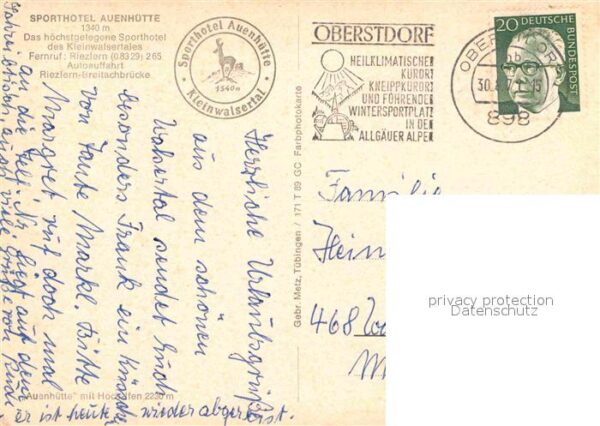 SPORTHOTEL AUENHÜTTE
1340 m
Das höchstgelegene Sporthotel
des Kleinwalsertales
Fernruf: Riezlern (08329) 265
Autoauffahrt
Riezlern-Breitachbrücke
Sporthotel Auenhütte
1340m
Kleinwalsertal
OBERSTDORF
HEILKLIMATISCHER
KURORT
KNEIPPKURORT
UND FÜHRENDER
WINTERSPORTPLATZ
IN DEN
ALLGÄUER ALPEN
898
20 DEUTSCHE
BUNDESPOST
Herzliche Urlaubsgrüße
aus dem schönen
Walsertal sendet Euch
besonders Frank ein Küsschen
von Tante Markl. Bitte
Margret ruf doch mal
an die Tel. Nr. liegt auf dem
viele Grüße von Rudi
er ist heute wieder abgereist.
Gebr. Metz, Tübingen / 171 T 89 GC Farbphotokarte
Familie
Hein
468
"Auenhütte" mit Hochifen 2230 m
privacy protection
Datenschutz